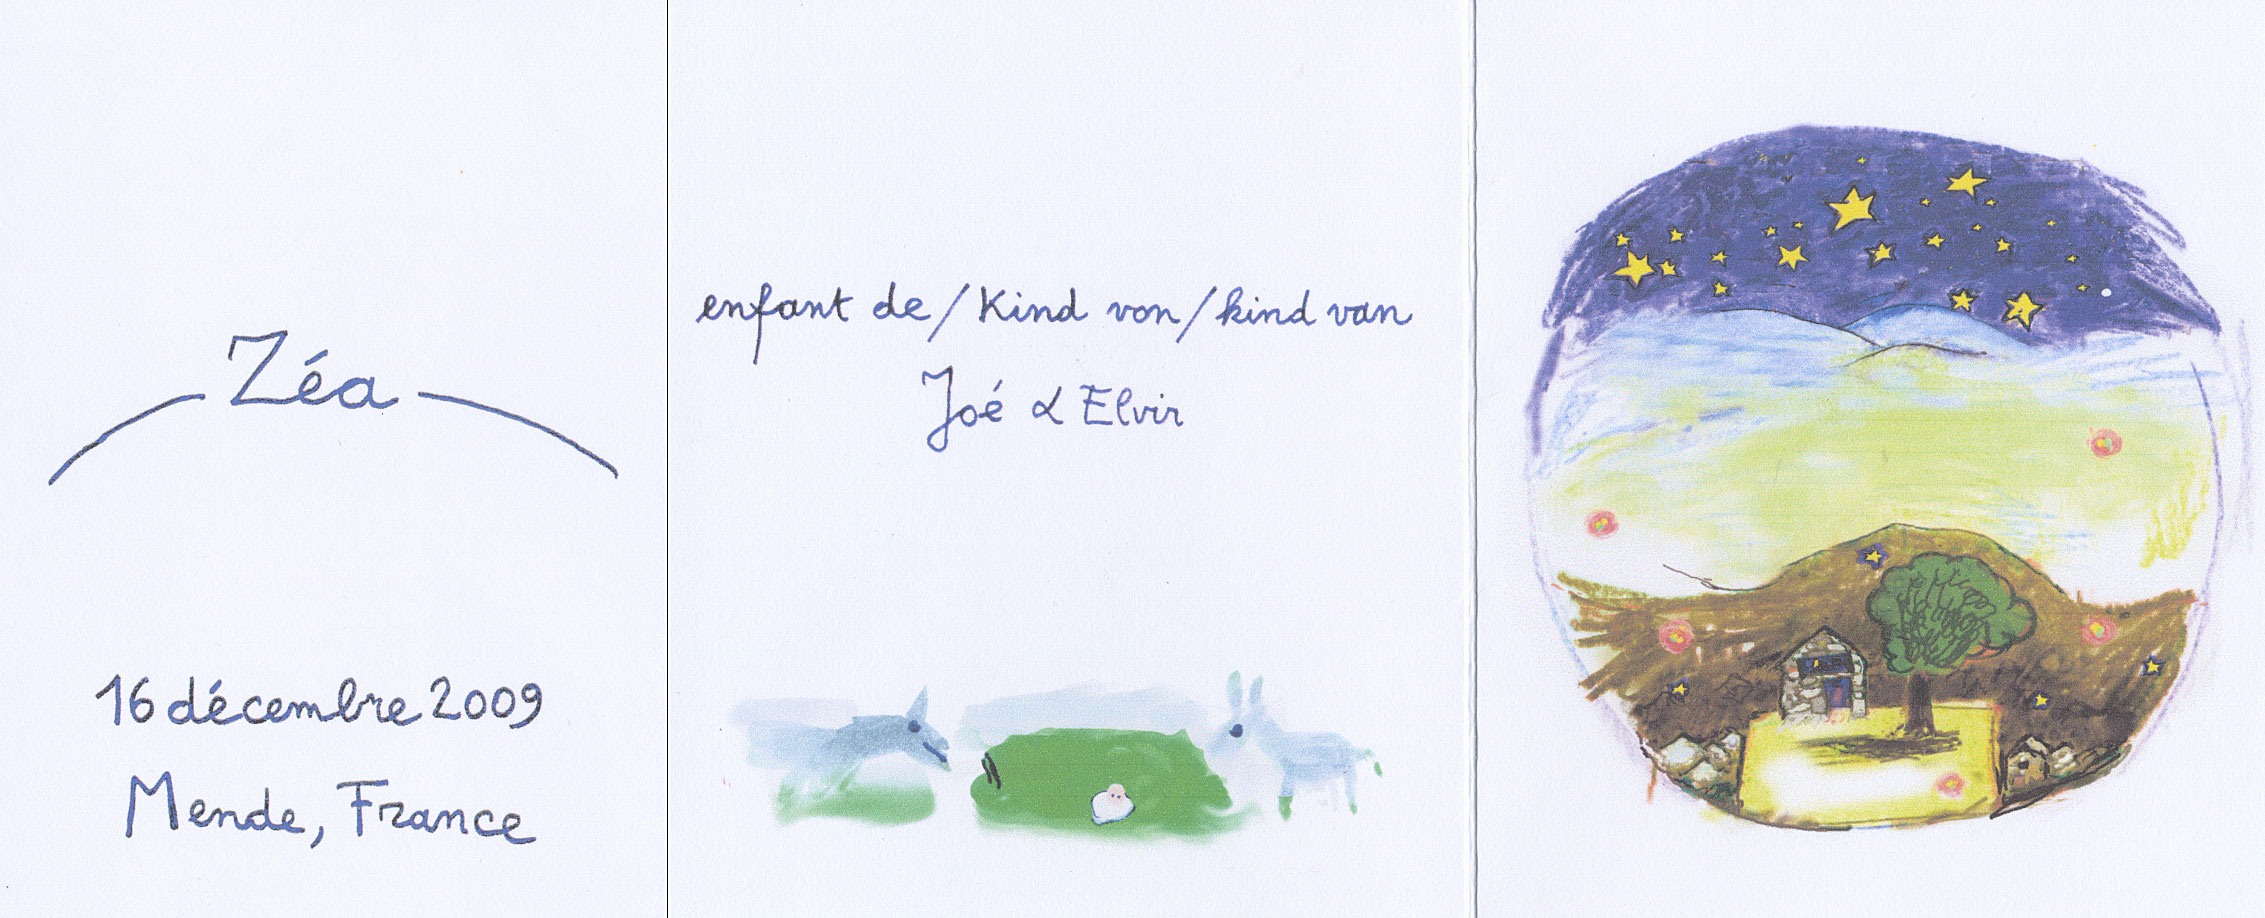 Zéa
16 décembre 2009
Mende, France
enfant de/Kind von/kind van
Joé & Elvir